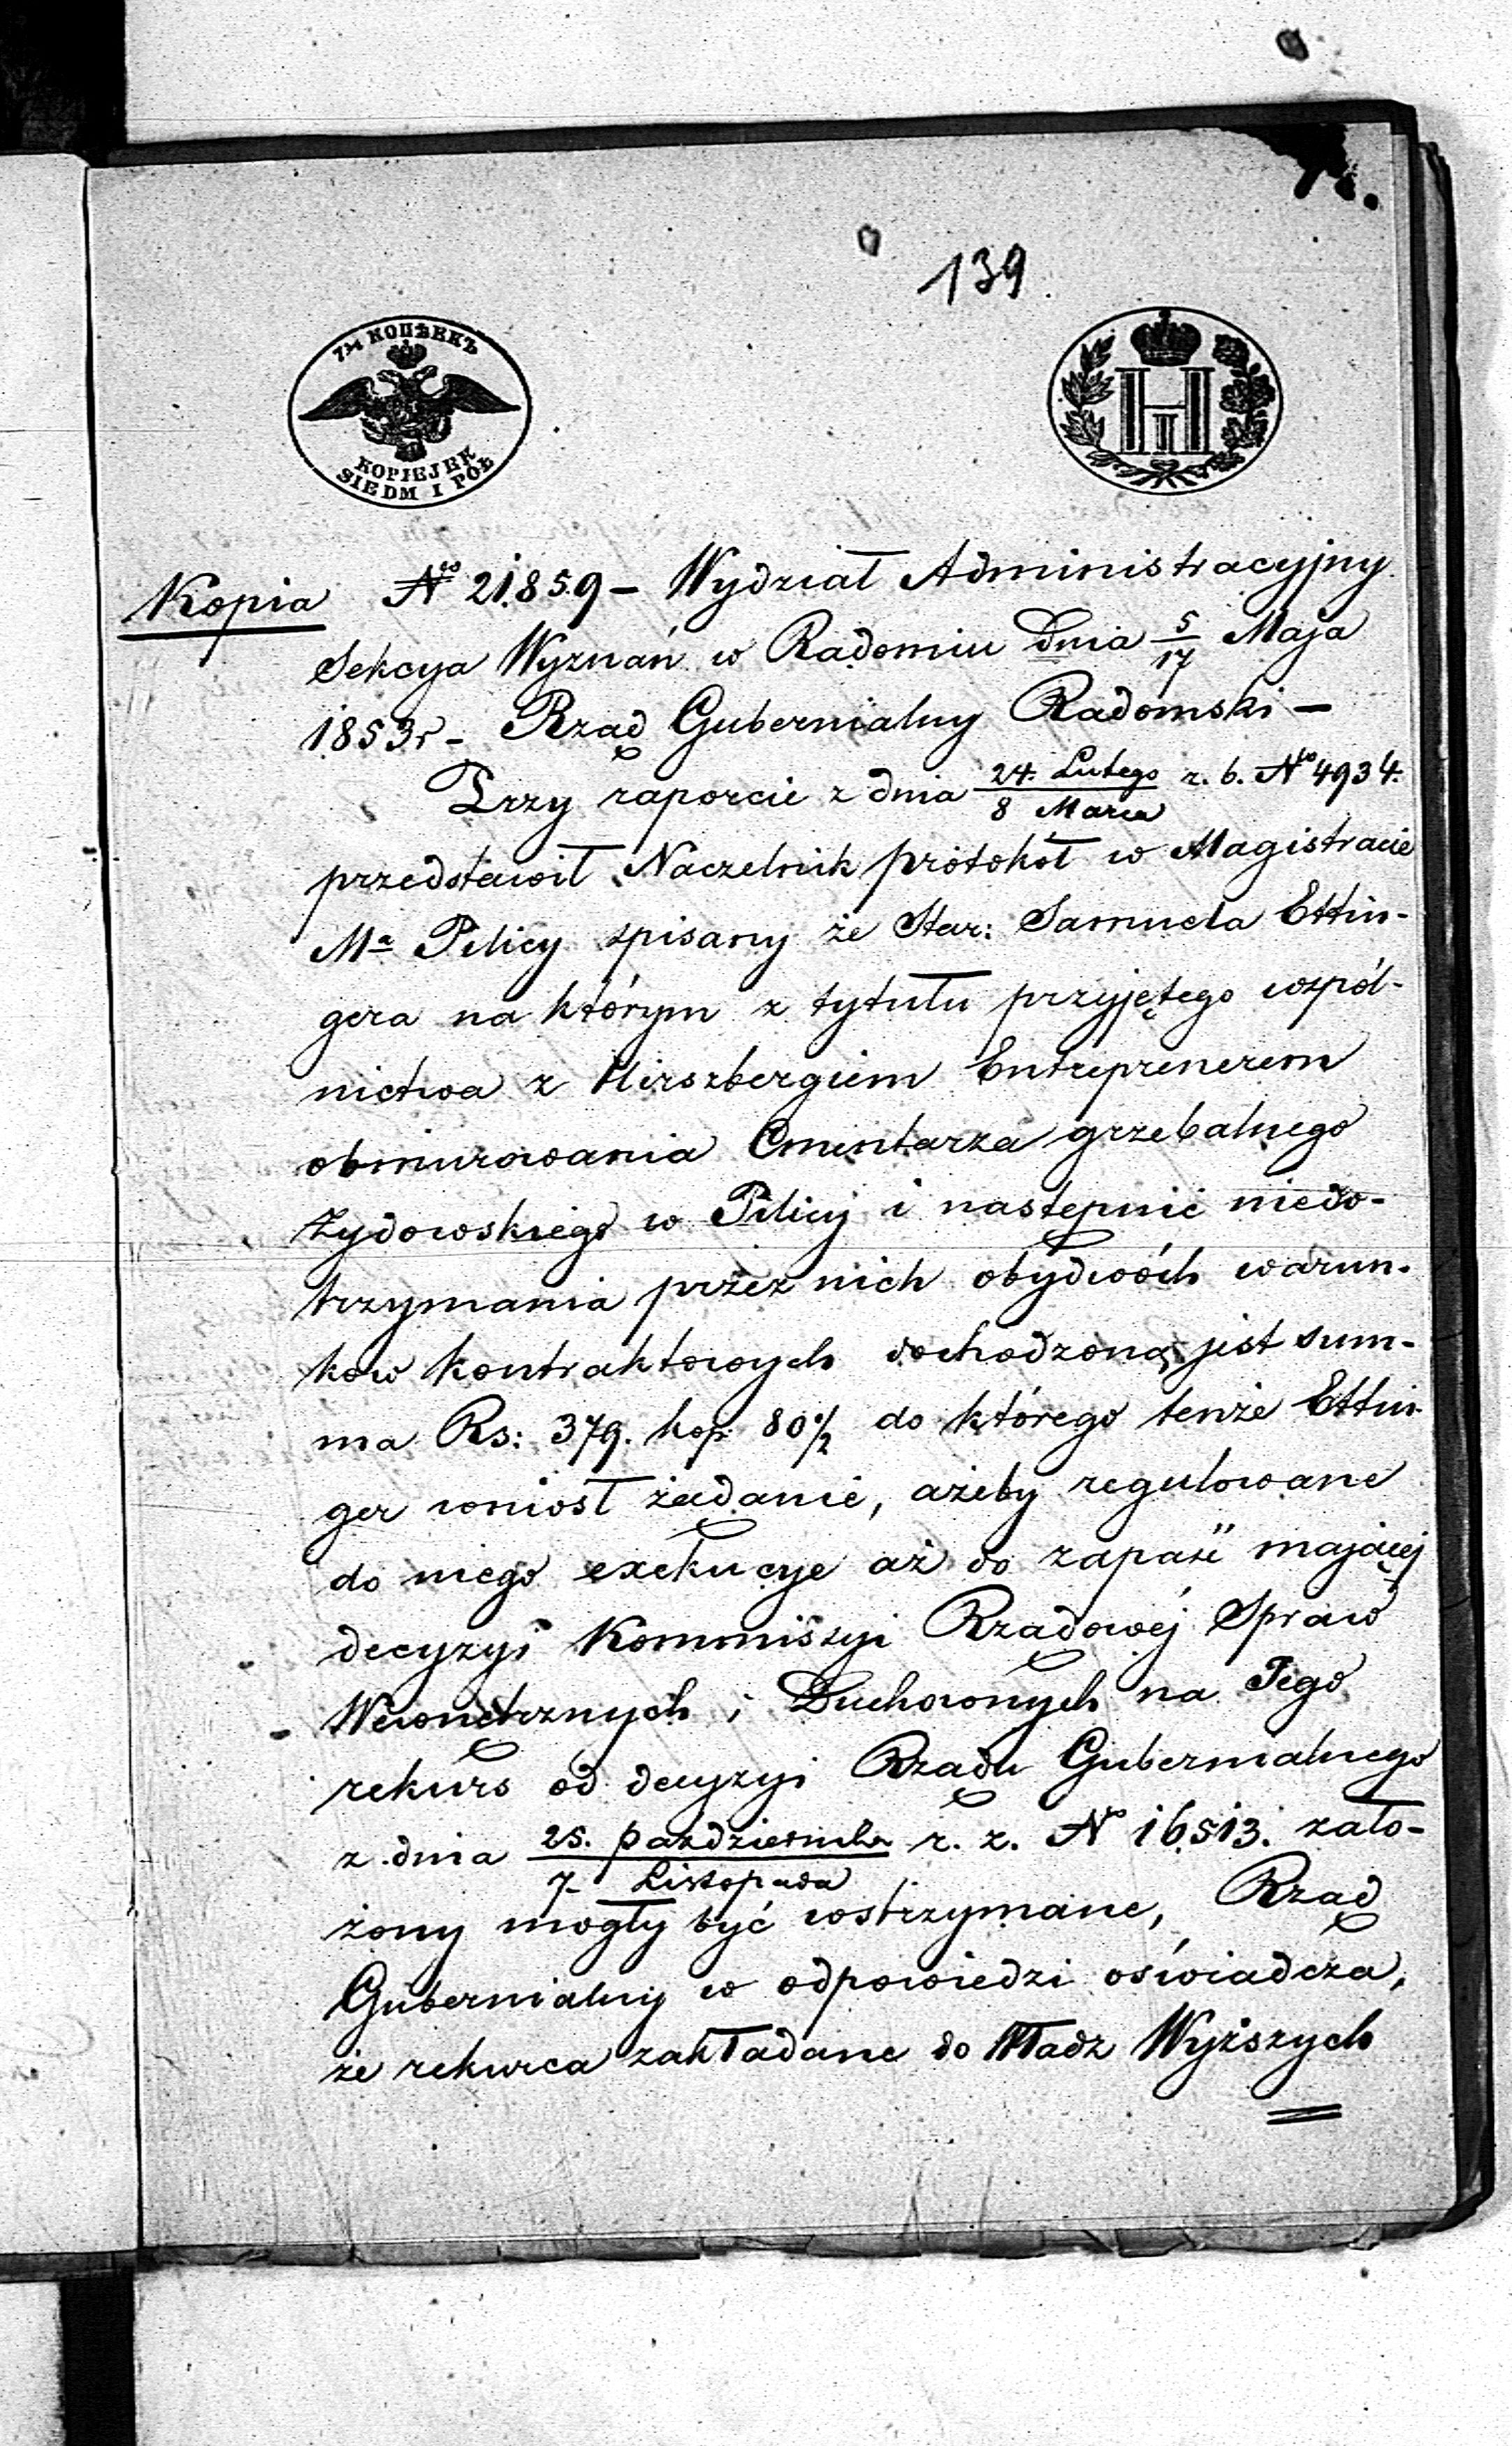 139.
7½ КОПѢЕКЪ
KOPIEJEK
SIEDM I PÓŁ
Kopia
No 21,859 – Wydział Administracyjny
Sekcya Wyznań w Radomiu Dnia 5/17 Maja
1853r – Rząd Gubernialny Radomski –
Przy raporcie z dnia 24. Lutego / 8 Marca r. b. No 4934.
przedstawił Naczelnik protokół w Magistracie
Ma Pilicy spisany że Star: Samuela Ettin-
gera na którym z tytułu przyjętego wspól-
nictwa z Hirszbergiem Entreprenerem
obmurowania Cmentarza grzebalnego
Żydowskiego w Pilicy i następnie niedo-
trzymania przez nich obydwóch warun-
ków kontraktowych dochodzoną jest sum-
ma Rs: 379. kop. 80½ do którego tenże Ettin-
ger wniósł żądanie, ażeby regulowane
do niego exekucye aż do zapaść mającej
decyzyi Kommissyi Rządowej Spraw
Wewnętrznych i Duchownych na Jego
rekurs od decyzyi Rządu Gubernialnego
z dnia 25. października / 7 Listopada r. z. No 16,513. zało-
żony mogły być wstrzymane, Rząd
Gubernialny w odpowiedzi oświadcza,
że rekursa zakładane do Władz Wyższych